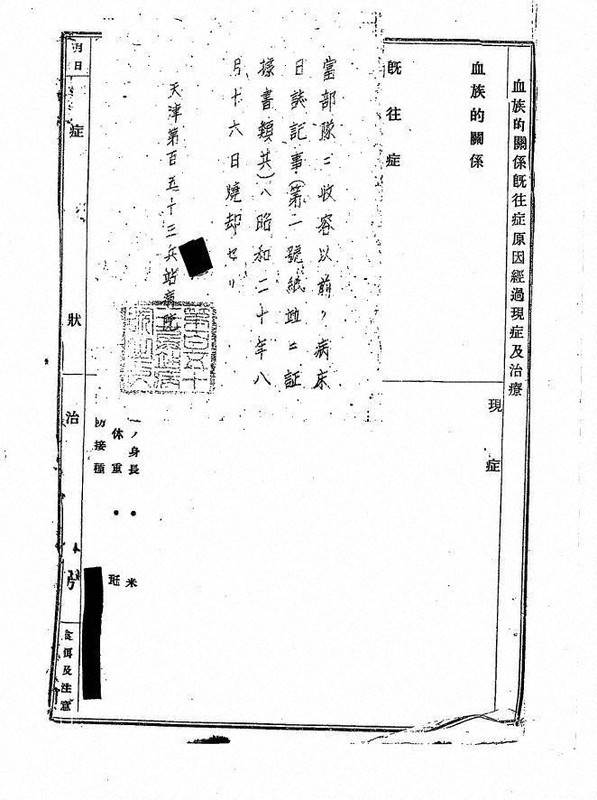 血族的關係既往症原因經過現症及治療
血族的關係
既往症
現症
當部隊ニ收容以前ノ病床
日誌記事(第二號紙竝ニ証
據書類共)ハ昭和二十年八
月十六日燒却セリ
天津第百五十三兵站病院
ノ身長・米
体重・瓩
防接種
月日
症狀
治
食餌及注意